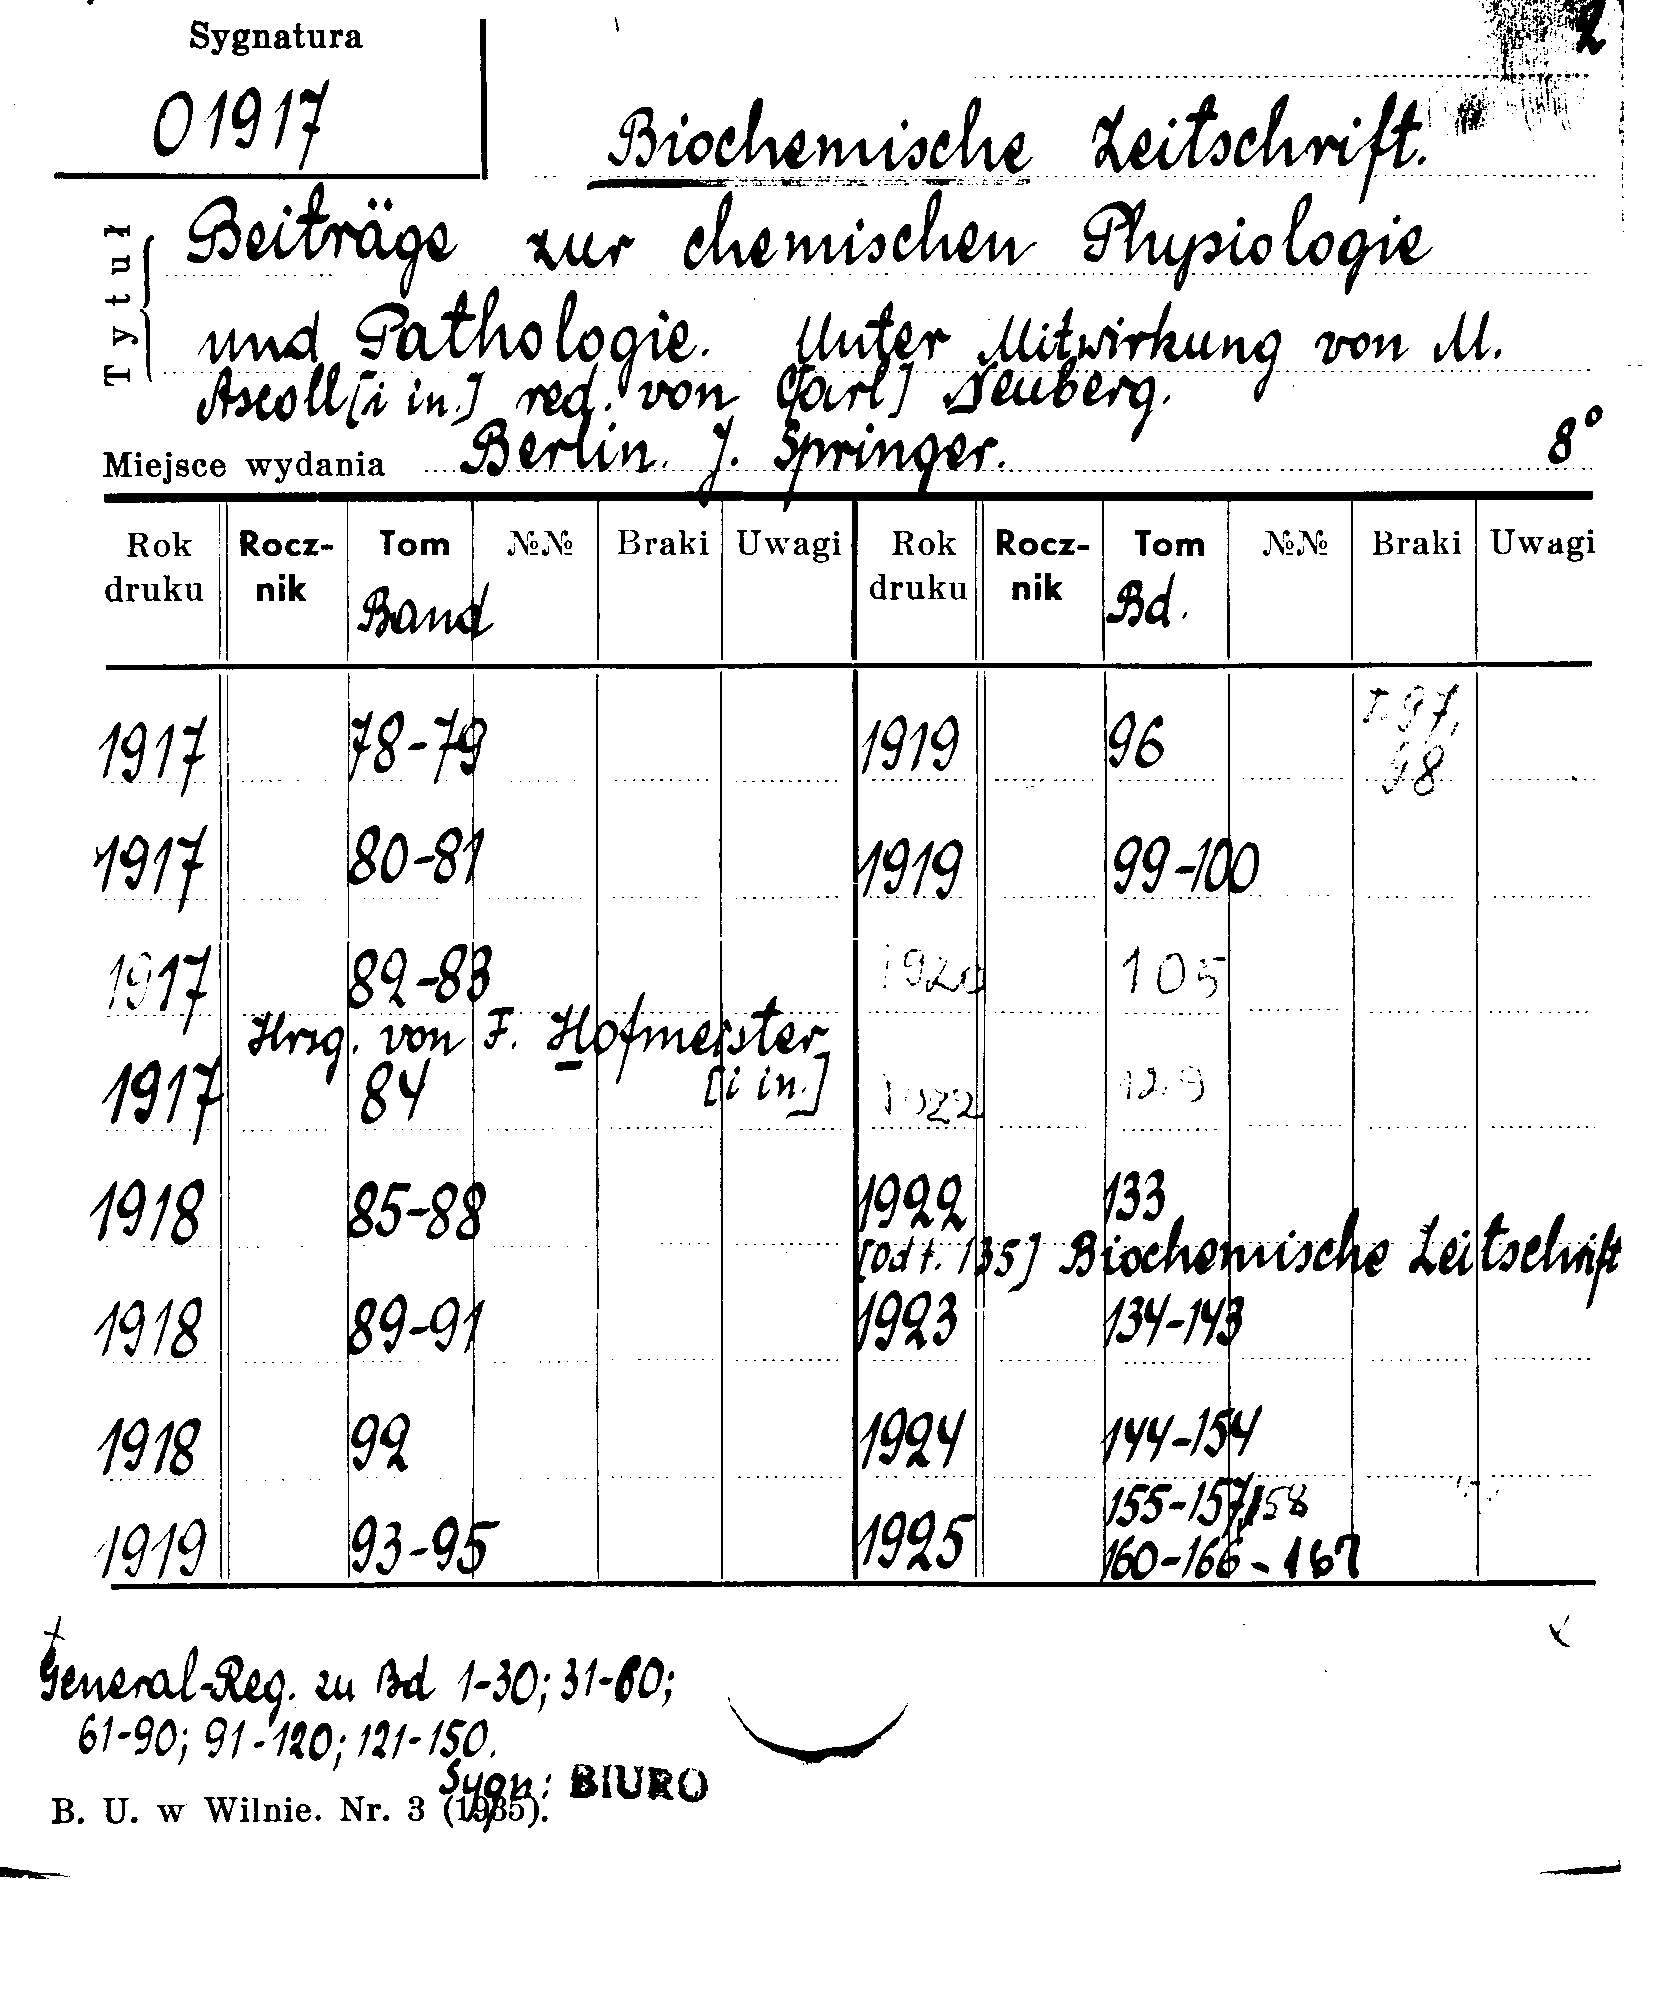 2
Sygnatura
O 1917
Biochemische Zeitschrift.
Tytuł
Beiträge zur chemischen Physiologie
und Pathologie. Unter Mitwirkung von M.
Ascoli [i in.] red. von C[arl] Neuberg.
Miejsce wydania Berlin. J. Springer. 8°
Rok druku Rocznik Tom №№ Braki Uwagi Rok druku Rocznik Tom №№ Braki Uwagi
Band Bd.
1917 78-79 1919 96 t. 97, 98
1917 80-81 1919 99-100
1917 82-83 1920 105
Hrsg. von F. Hofmeister
[i in.]
1917 84 1922 129
1918 85-88 1922 133
[Od t. 135] Biochemische Zeitschrift
1918 89-91 1923 134-143
1918 92 1924 144-154
1919 93-95 1925 155-157, 158
160-166 - 167
General-Reg. zu Bd 1-30; 31-60;
61-90; 91-120; 121-150.
Sygn: BIURO
B. U. w Wilnie. Nr. 3 (1935).